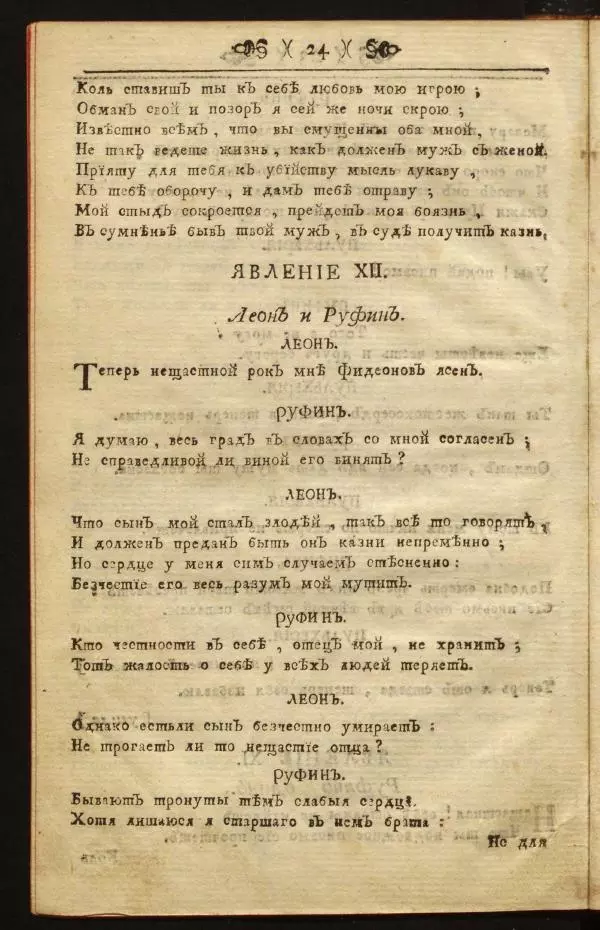 )( 24 )(
Коль ставишъ ты къ себѣ любовь мою игрою ;
Обманъ свой и позоръ я сей же ночи скрою ;
Извѣстно всѣмъ , что вы смущенны оба мной ,
Не такъ ведете жизнь , какъ долженъ мужъ съ женой.
Прїяту для тебя къ убїйству мысль лукаву ,
Къ тебѣ оборочу , и дамъ тебѣ отраву ;
Мой стыдъ сокроется , прейдетъ моя боязнь ,
Въ сумнѣньѣ бывъ твой мужъ , въ судѣ получитъ казнь.
ЯВЛЕНІЕ XII.
Леонъ и Руфинъ.
ЛЕОНЪ.
Теперь нещастной рокъ мнѣ Фидеоновъ ясенъ.
РУФИНЪ.
Я думаю , весь градъ въ словахъ со мной согласенъ ;
Не справедливой ли виной его винятъ ?
ЛЕОНЪ.
Что сынъ мой сталъ злодѣй , такъ всѣ то говорятъ ,
И долженъ преданъ быть онъ казни непремѣнно ;
Но сердце у меня симъ случаемъ стѣсненно :
Безчестїе его весь разумъ мой мутитъ.
РУФИНЪ.
Кто честности въ себѣ , отецъ мой , не хранитъ ;
Тотъ жалость о себѣ у всѣхъ людей теряетъ.
ЛЕОНЪ.
Однако естьли сынъ безчестно умираетъ :
Не трогаетъ ли то нещастїе отца ?
РУФИНЪ.
Бываютъ тронуты тѣмъ слабыя сердца.
Хотя лишаюся я старшаго въ немъ брата :
Но для